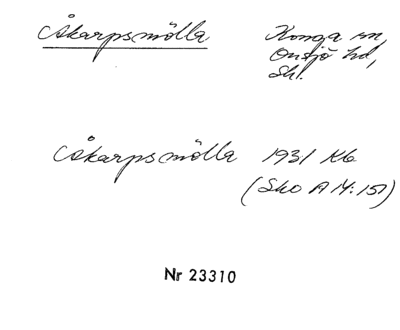 Åkarpsmölla Konga sn,
Onsjö hd,
Sk.
Åkarpsmölla 1931 Kb
(Sko A 14:151)
Nr 23310